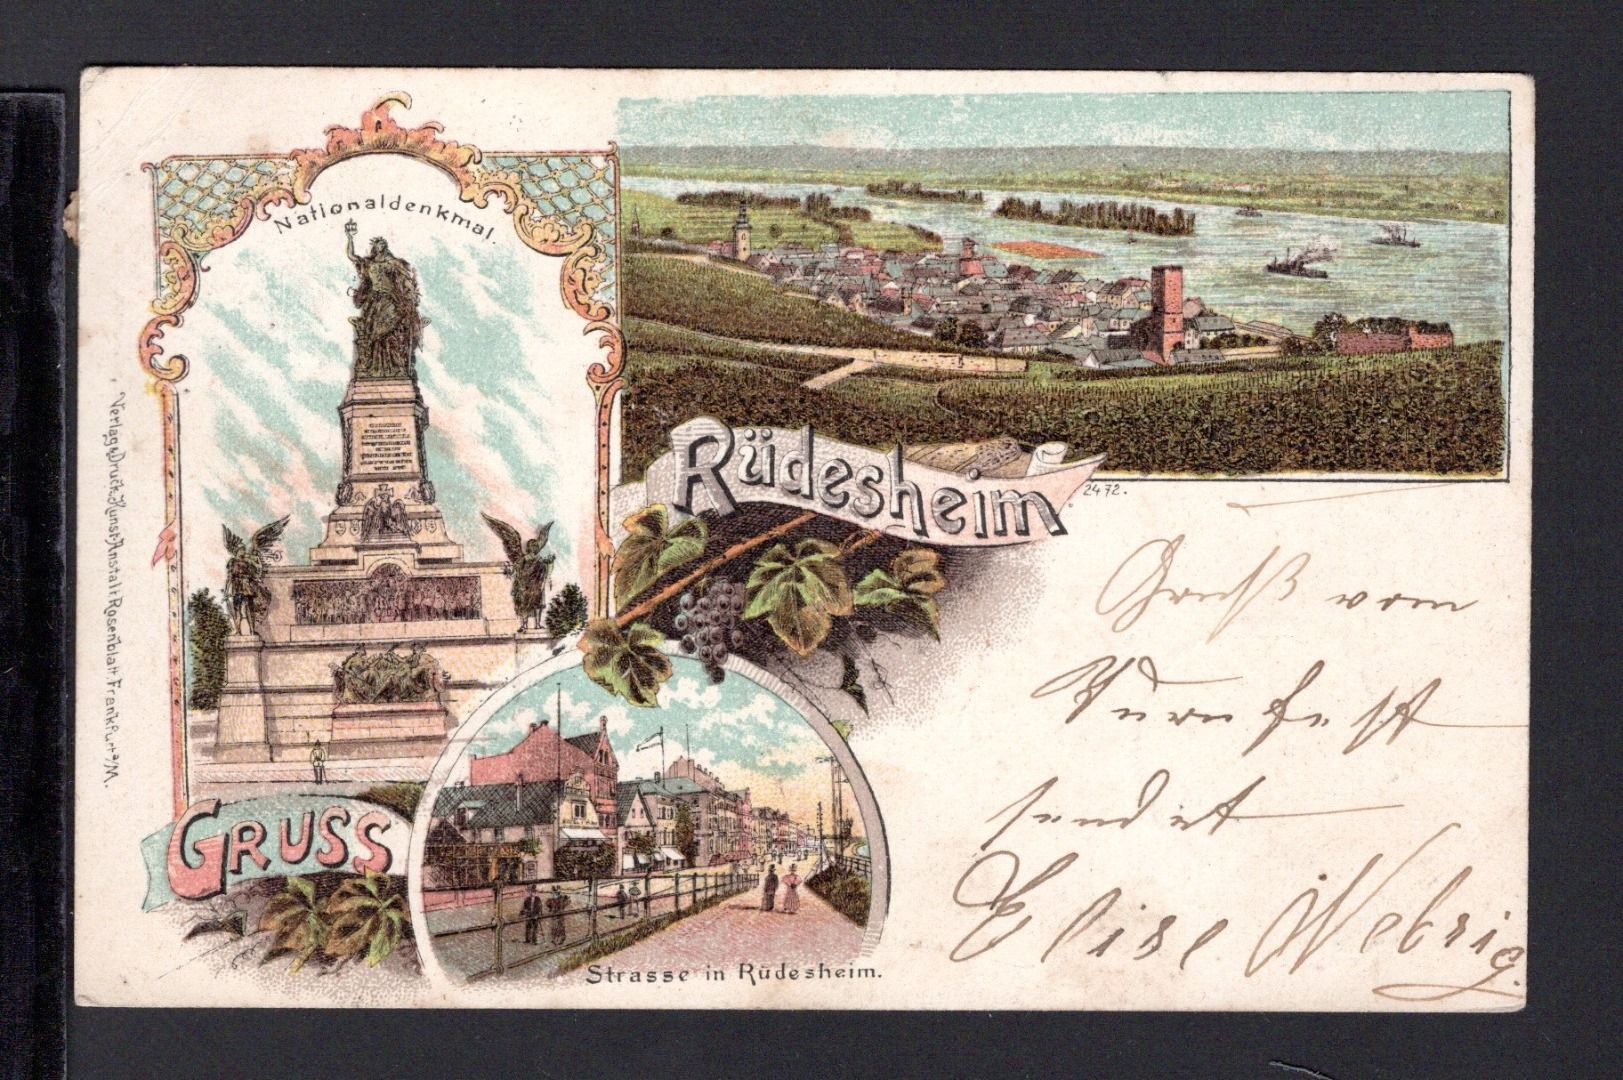 Nationaldenkmal.
Rüdesheim.
2472.
Gruß vom
Turnfest
sendet
Elise Webrig.
GRUSS
Strasse in Rüdesheim.
Verlag u. Druck. Kunst-Anstalt Rosenblatt. Frankfurt a/M.